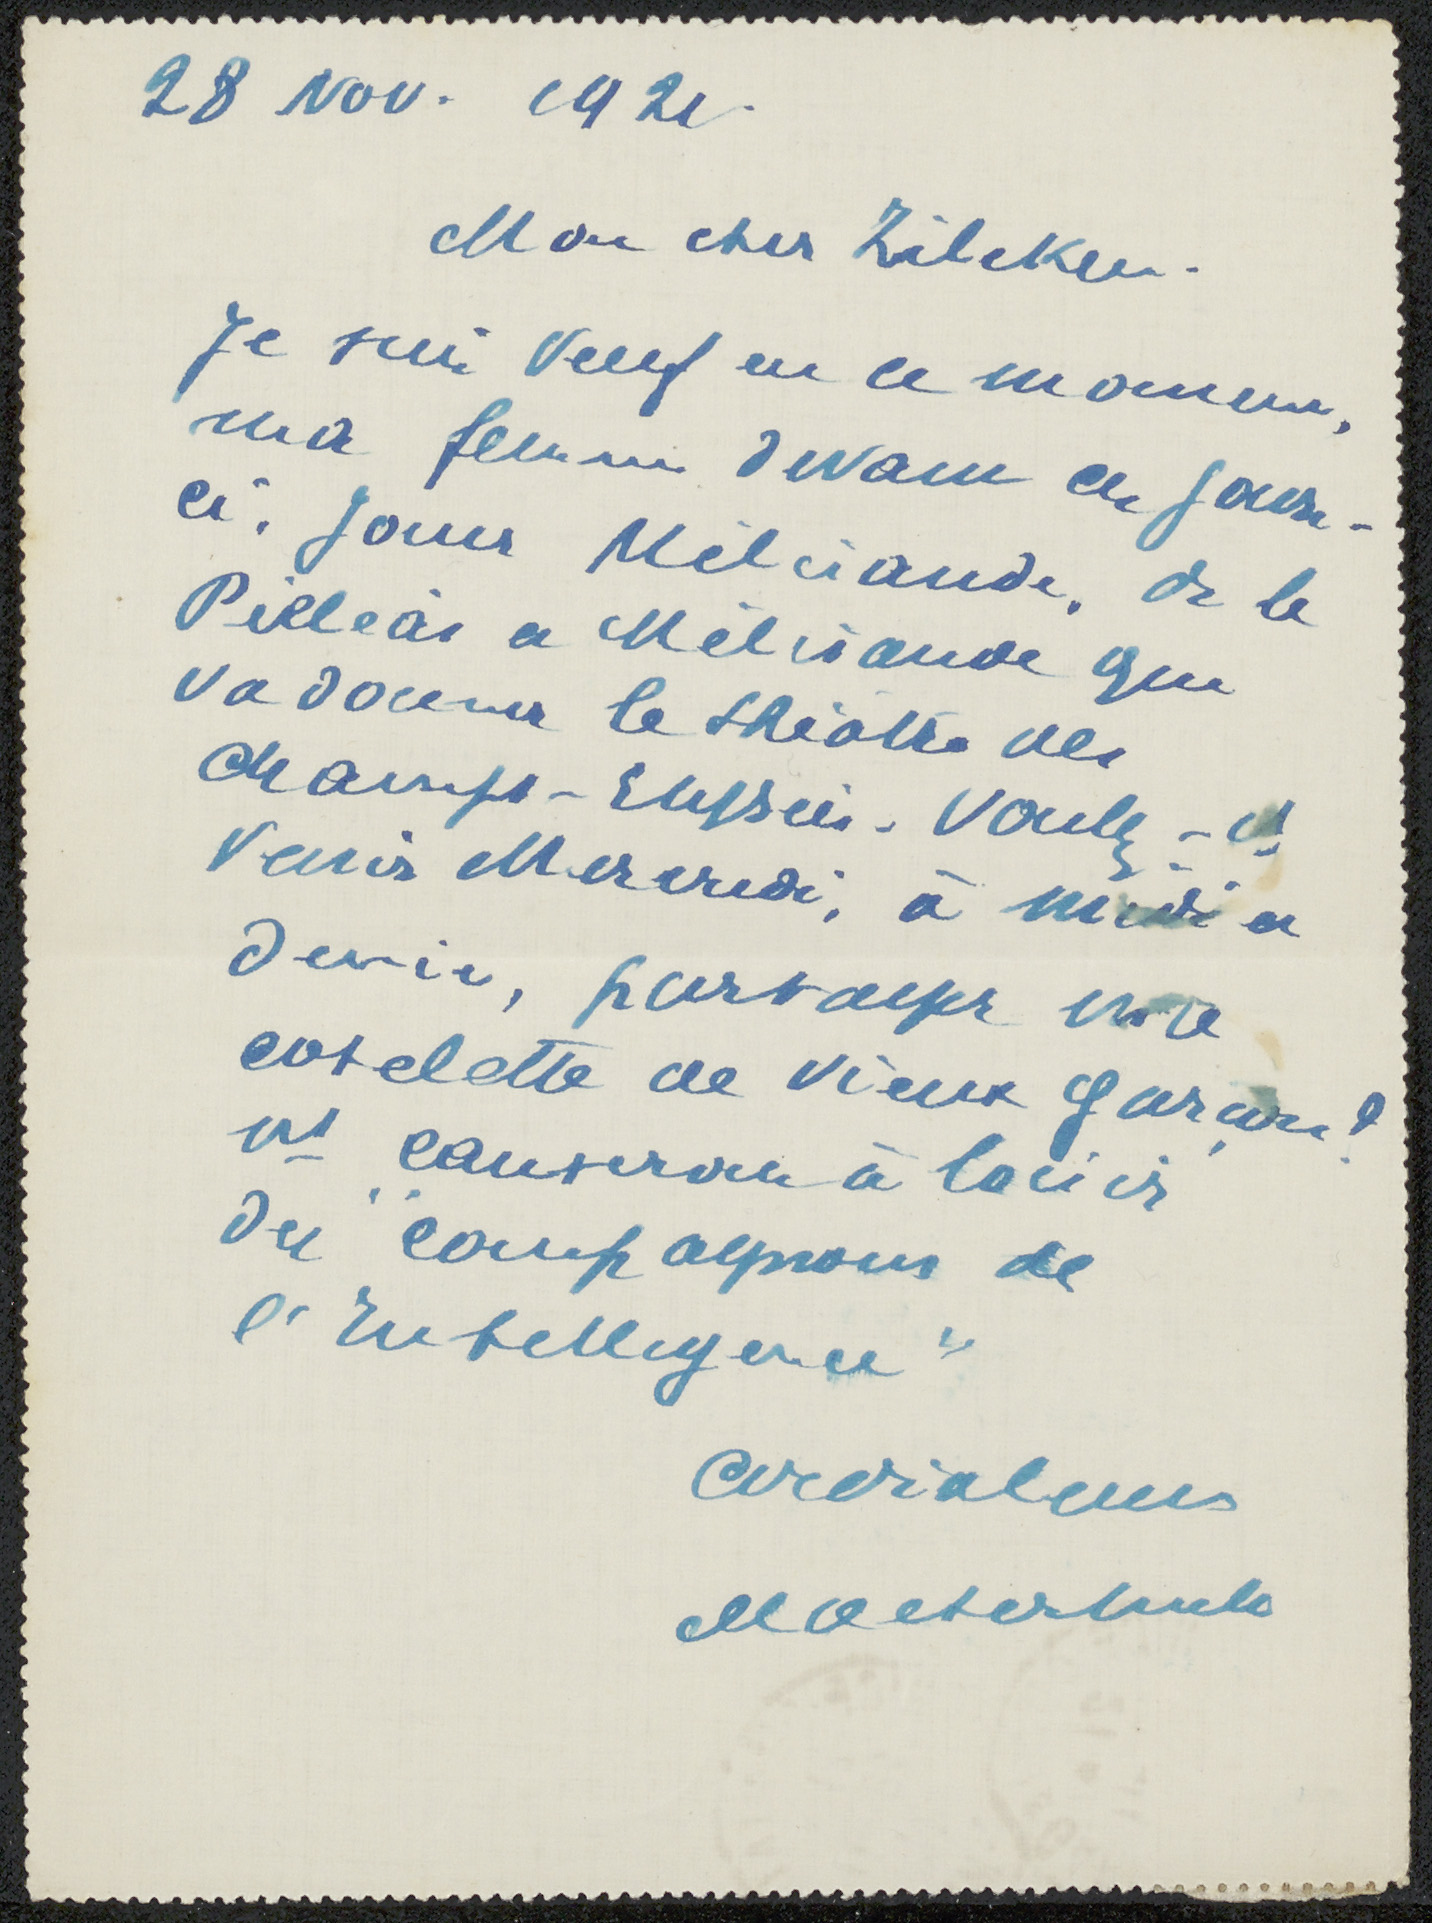 28 Nov. 1921.
Mon cher Zilcken.
Je suis veuf en ce moment,
ma femme devant ces jours-
ci, jouer Mélisande, de le
Pélléas et Mélisande que
va donner le théâtre des
Champs-Elysées. Voulez-vs
venir Mercredi, à midi et
demie, partager une
cotelette de vieux garçon?
ns causerons à loisir
des "compagnons de
l'Intelligence"
Cordialement
Maeterlinck